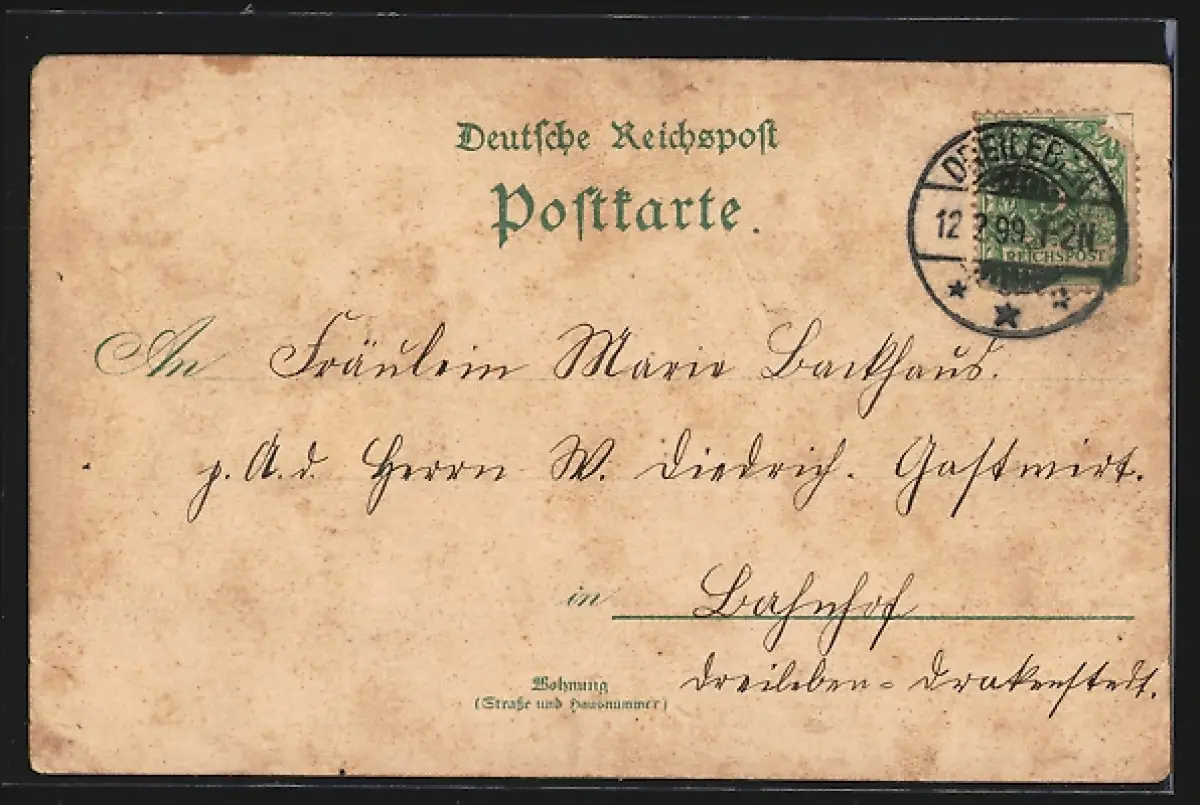 Deutsche Reichspost
Postkarte.
DREILEB
12 2 99 1-2N
REICHSPOST
An Fräulein Marie Backhaus.
p. A. d. Herrn W. Diedrich. Gastwirt.
in Bahnhof
Wohnung
(Straße und Hausnummer)
Dreileben = Drakenstedt.